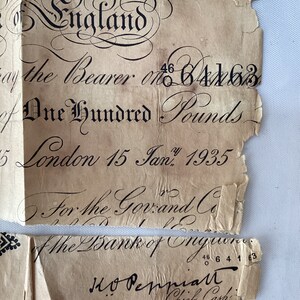 of England
pay the Bearer on Dem
46/O 64163
of One Hundred Pounds
5 London 15 Jan.y 1935
For the Gov.r and Co
of the Bank of England
46/O 64163
K.O. Peppiatt
Chief Cash